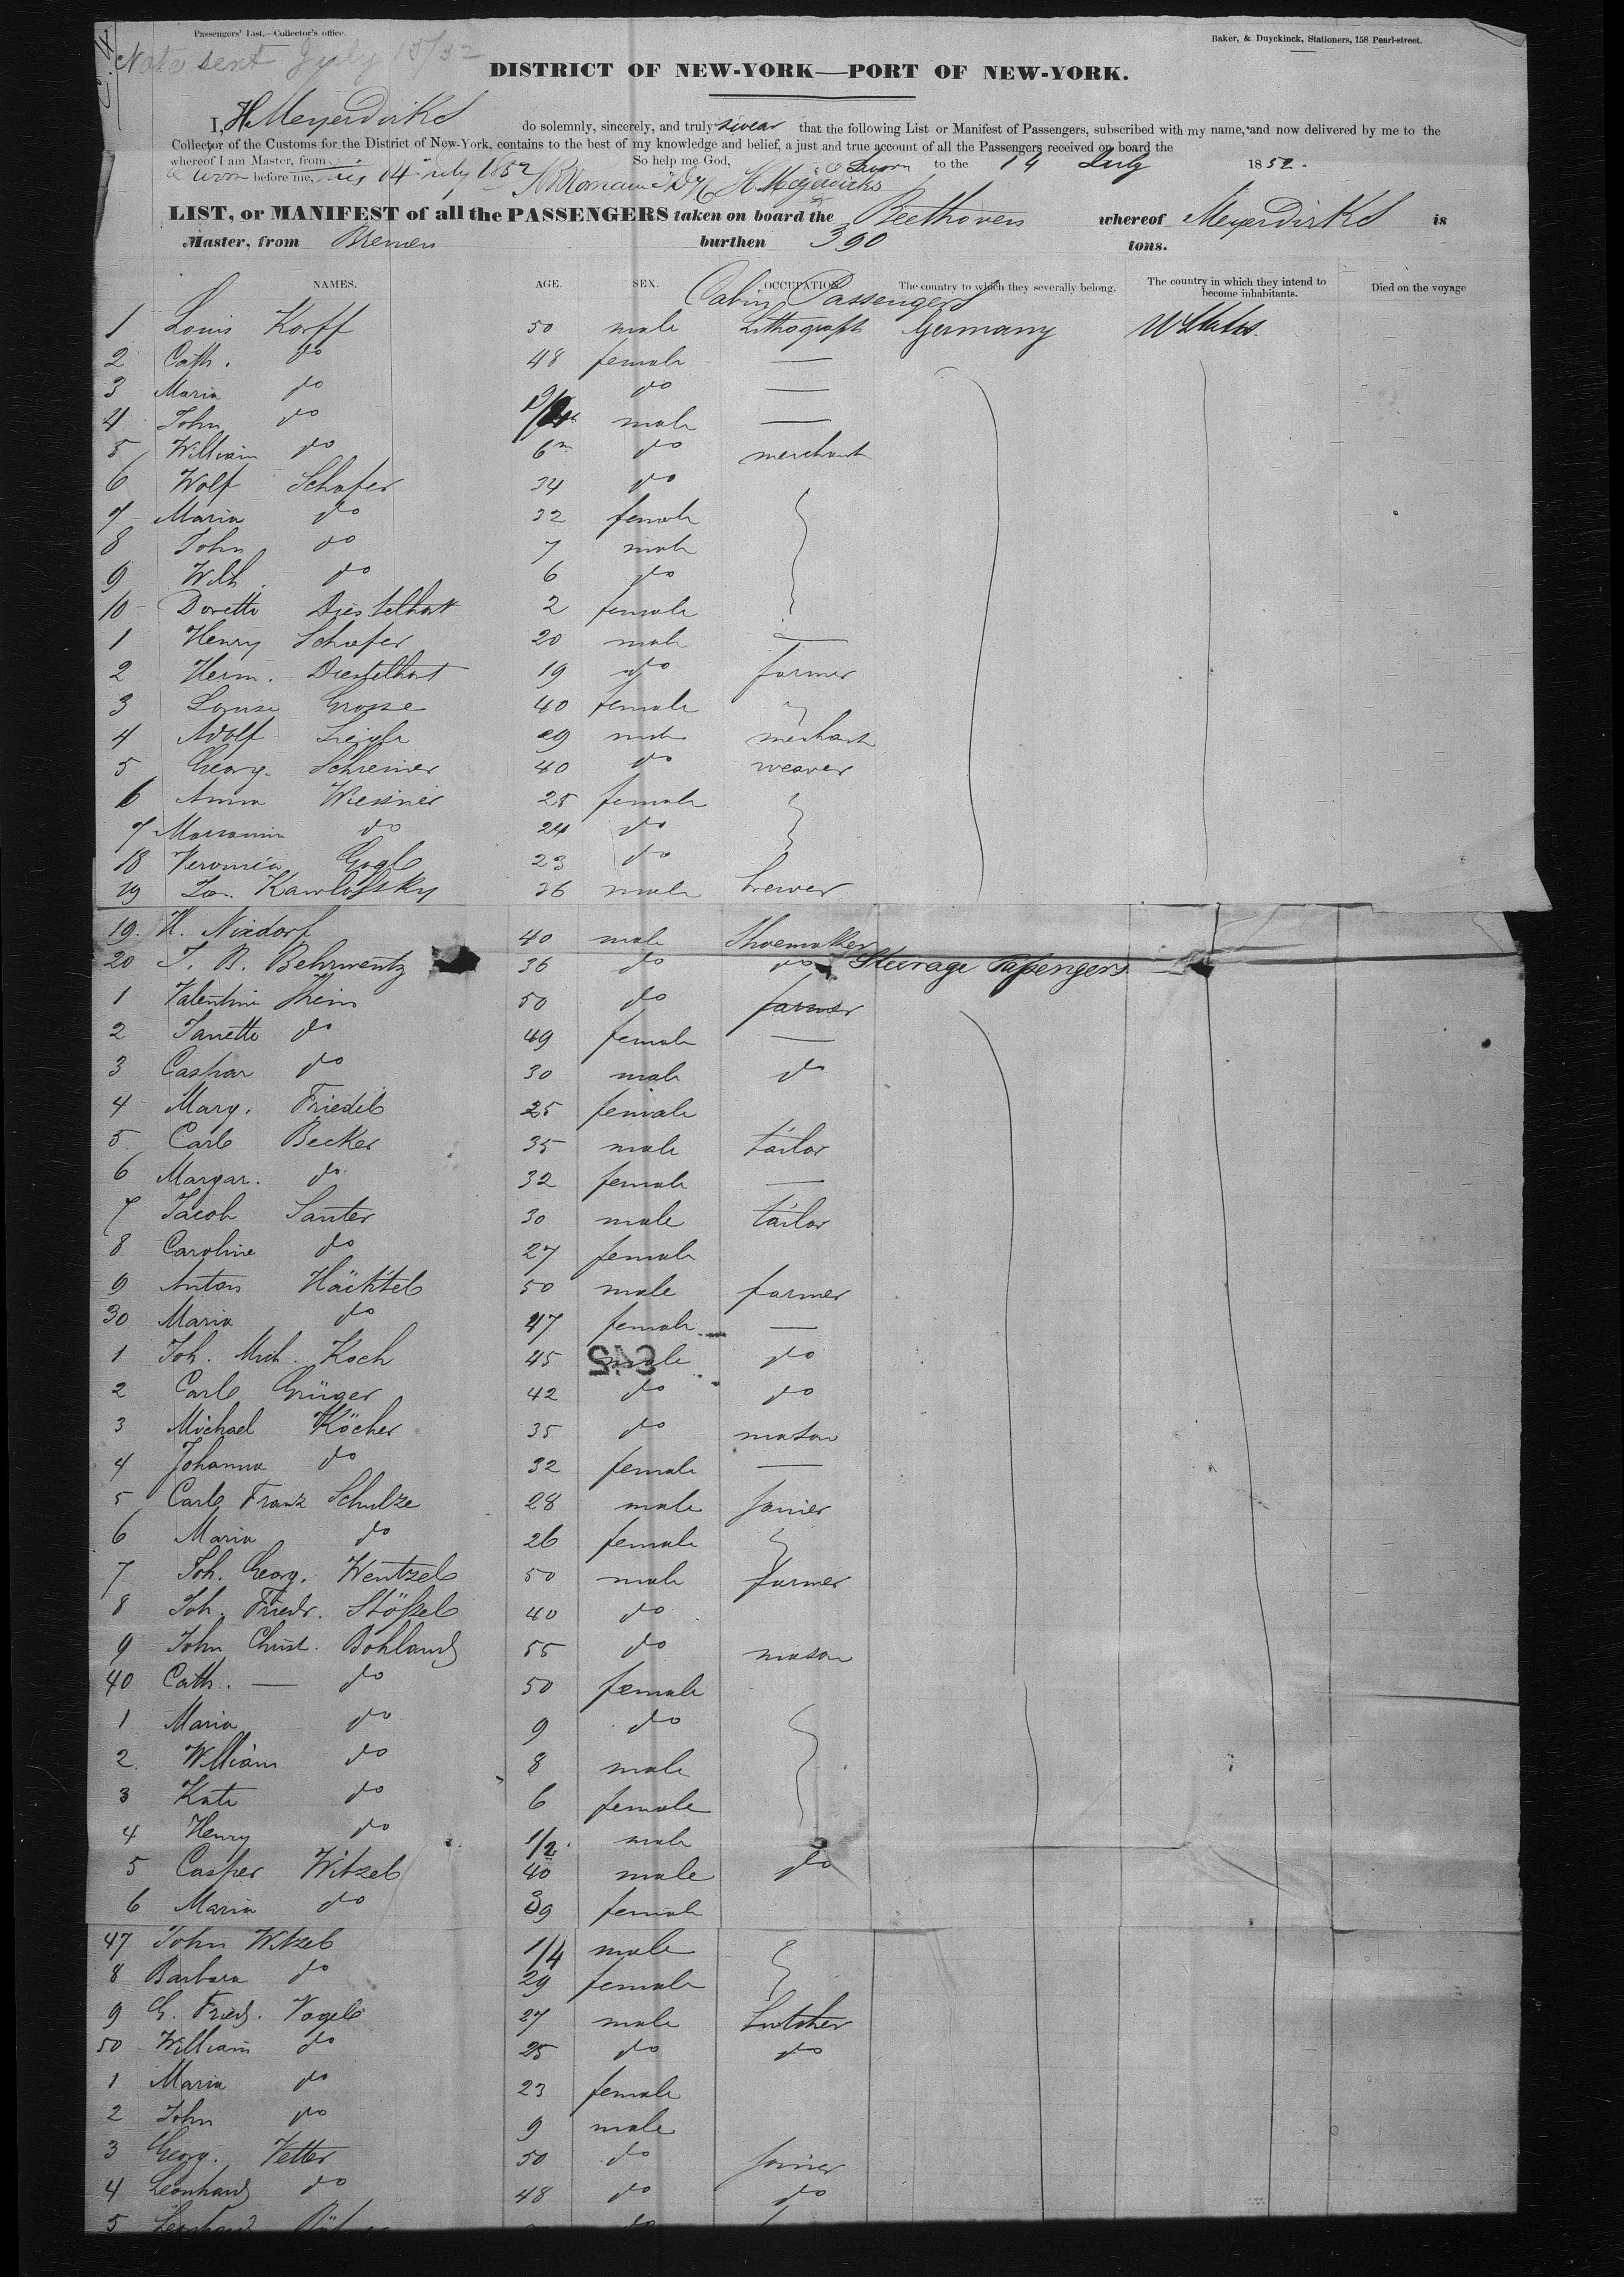 Passengers' List.—Collector's office.
Baker, & Duyckinck, Stationers, 158 Pearl-street.
Note sent July 15/52
DISTRICT OF NEW-YORK—PORT OF NEW-YORK.
I, H. MeyerdirKs do solemnly, sincerely, and truly swear that the following List or Manifest of Passengers, subscribed with my name, and now delivered by me to the
Collector of the Customs for the District of New-York, contains to the best of my knowledge and belief, a just and true account of all the Passengers received on board the
whereof I am Master, from So help me God, Sworn to the 14 July 1852.
Sworn before me, this 14 July 1852 H. Meyerdirks
LIST, or MANIFEST of all the PASSENGERS taken on board the Beethoven whereof MeyerdirKs is
Master, from Bremen burthen 390 tons.
NAMES. AGE. SEX. OCCUPATION. The country to which they severally belong. The country in which they intend to become inhabitants. Died on the voyage
Cabin Passengers
1 Louis Korff 50 male Lithograph Germany U States.
2 Cath. do 48 female —
3 Maria do do —
4 John do male —
5 William do 6m do merchant
6 Wolf Schafer 34 do
7 Maria do 32 female
8 John do 7 male
9 Wilh. do 6 do
10 Dorette Diestelhort 2 female
1 Henry Schafer 20 male —
2 Herm. Diestelhort 19 do farmer
3 Louise Grosse 40 female
4 Adolf 29 male merchant
5 Georg. Schreiner 40 do weaver
6 Anna Wiesner 25 female
7 do 24 do
18 Veronica Gogl 23 do
19 Kawlofsky 36 male brewer
19. H. Nixdorf 40 male Shoemaker
20 J. B. Behrwentz 36 do do Steerage Passengers
1 Valentine 50 do farmer
2 Janette do 49 female —
3 Caspar do 30 male do
4 Marg. Friedel 25 female
5. Carl Becker 35 male tailor
6 Margar. do 32 female —
7 Jacob Santer 30 male tailor
8 Caroline do 27 female
9 Anton Hächtel 50 male farmer
30 Maria do 47 female —
1 Joh. Mich. Koch 45 male do
2 Carl Grüger 42 do do
3 Michael Köcher 35 do mason
4 Johanna do 32 female —
5 Carl Franz Schulze 28 male joiner
6 Maria do 26 female
7 Joh. Georg. Wentzel 50 male farmer
8 Joh. Friedr. Stößel 40 do
9 John Christ. Bohland 55 do mason
40 Cath. — do 50 female
1 Maria do 9 do
2. William do 8 male
3 Kate do 6 female
4 Henry do 1/2 male
5 Casper Witzel 40 male do
6 Maria do 39 female
47 John Witzel 1/4 male
8 Barbara do 29 female
9 G. Fried. Vogel 27 male butcher
50 William do 25 do do
1 Maria do 23 female
2 John do 9 male
3 Georg. Vetter 50 do joiner
4 Leonhard do 48 do do
5 Leonhard do